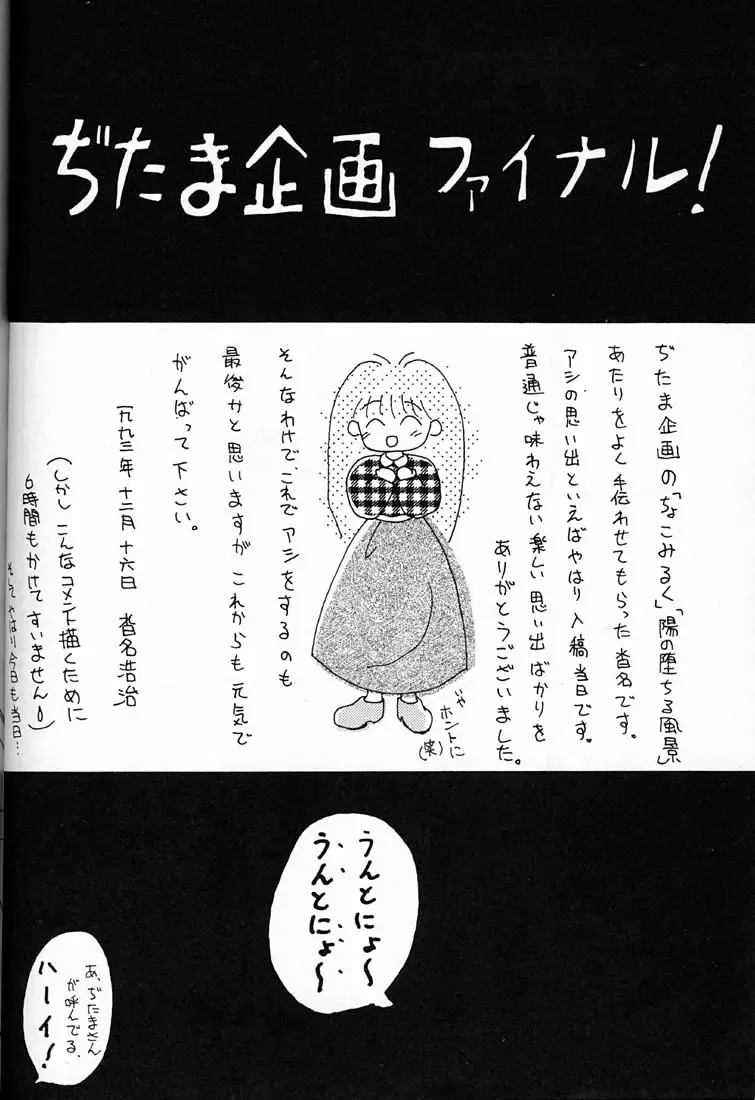 ぢたま企画 ファイナル!
ぢたま企画の「ちょこみるく」「陽の堕ちる風景」
あたりをよく手伝わせてもらった沓名です。
アシの思い出といえばやはり入稿当日です。
普通じゃ味わえない楽しい思い出ばかりを
ありがとうございました。
いやホントに
(笑)
そんなわけで、これでアシをするのも
最後かと思いますが これからも元気で
がんばって下さい。
一九九三年十二月十六日 沓名浩治
(しかし こんなコメント描くために
6時間もかけてすいません)
そして やはり今日も当日…
うんとにょ〜
うんとにょ〜
あ、ぢたまさん
が呼んでる、
ハーイ!